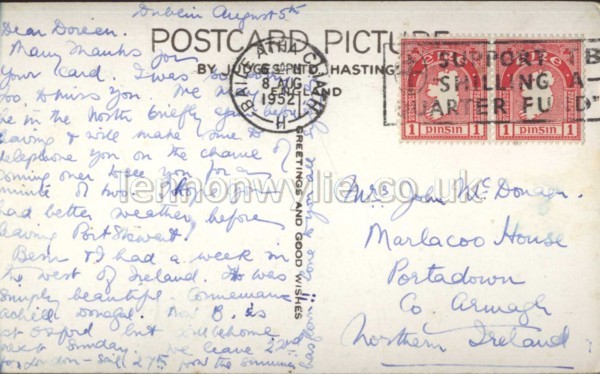 Dublin August 5th
Dear Doreen,
Many thanks for
your card. I was too sorry
to miss you. We
be in the North briefly before
leaving & will make some to
telephone you on the chance of
coming over to see you for a
minute or two. Hope you
had better weather before
leaving Port Stewart.
Been & I had a week in
the west of Ireland. It was
simply beautiful. Connemara
Achill Donegal. Now B. is
at Oxford but will be home
next Sunday. We leave 22nd
for London - Sail 27th from the
POSTCARD PICTURE
BY JUDGES LTD, HASTINGS
ENGLAND
GREETINGS AND GOOD WISHES
BAILE ATHA CLIATH
8 AUG
1952
H
SUPPORT
SHILLING A
QUARTER FUND
1 PINSIN 1
1 PINSIN 1
Mrs John McDonagh
Marlacoo House
Portadown
Co. Armagh
Northern Ireland
lennonwylie.co.uk